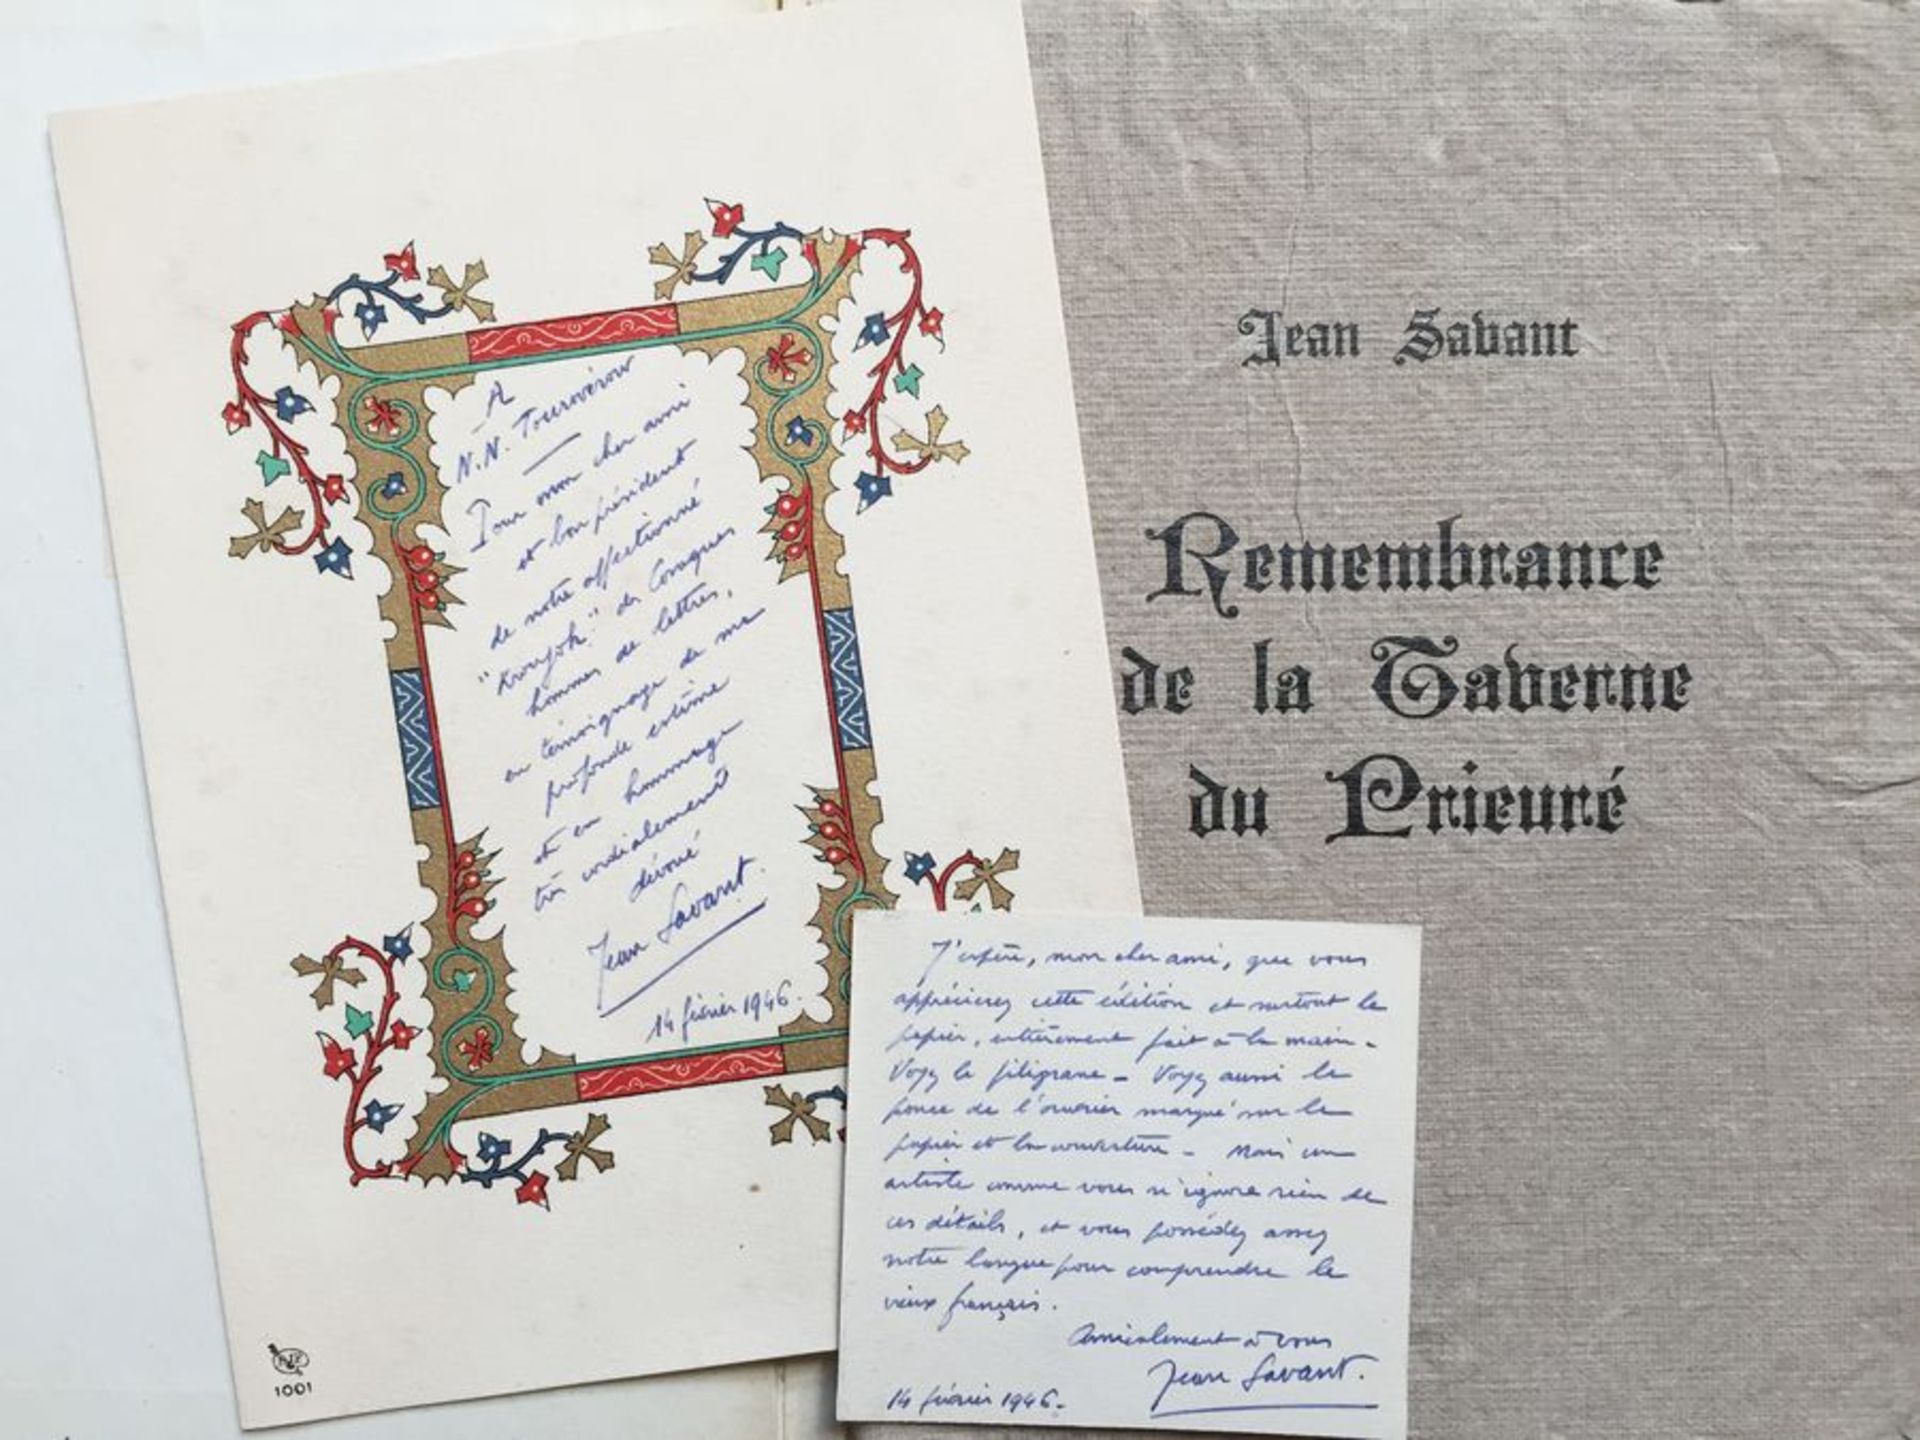 A
N.N. Tourovérow
Pour mon cher ami
et bon président
de notre affectionné
"Kroujok" des Cosaques
hommes de lettres,
en témoignage de ma
profonde estime
et en hommage
très cordialement
dévoué
Jean Savant.
14 février 1946.
1001
Jean Savant
Remembrance
de la Taverne
du Prieuré
J'espère, mon cher ami, que vous
apprécierez cette édition et surtout le
papier, entièrement fait à la main -
Voyez le filigrane - Voyez aussi le
pouce de l'ouvrier marqué sur le
papier et la couverture - Mais un
artiste comme vous n'ignore rien de
ces détails, et vous possédez assez
notre langue pour comprendre le
vieux français.
Amicalement à vous
Jean Savant.
14 février 1946.